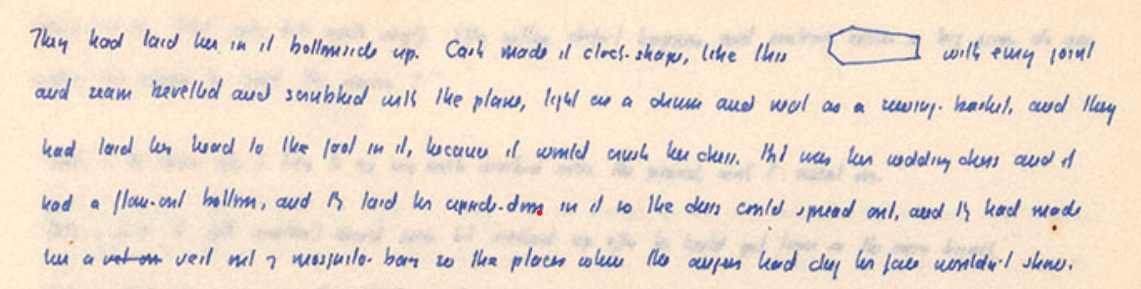 They had laid her in it bottomside up. Cash made it clock-shape, like this with every joint
and seam bevelled and scrubbed with the plane, tight as a drum and neat as a sewing-basket, and they
had laid her head to the foot in it, because it would crush her dress. It was her wedding dress and it
had a flare-out bottom, and they laid her upside-down in it so the dress could spread out, and they had made
her a veil out of mosquito-bar so the places where the augers had dug her face wouldn't show.